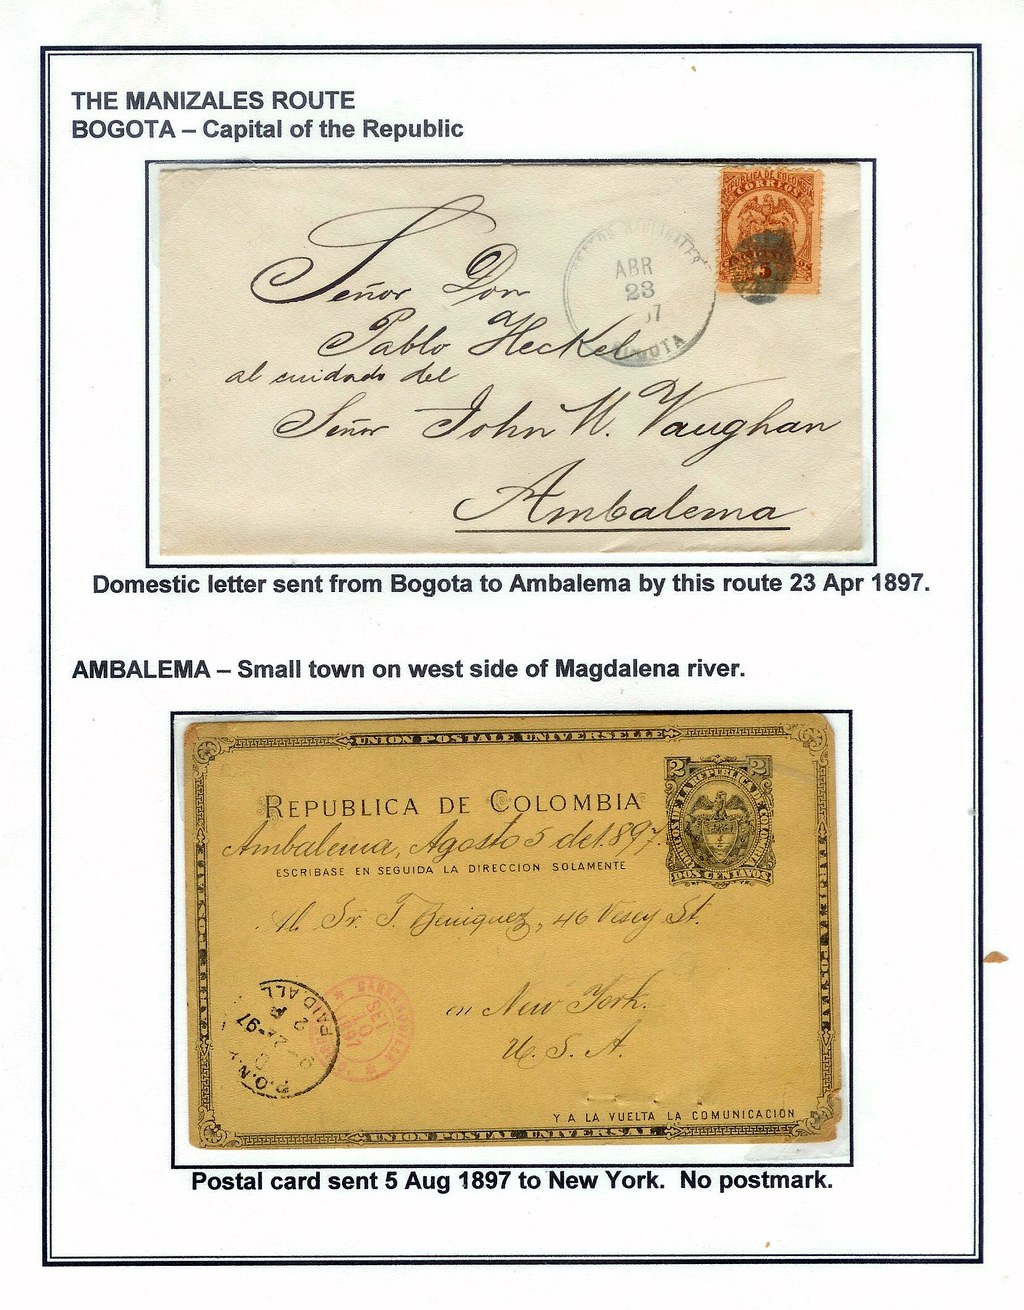 THE MANIZALES ROUTE
BOGOTA – Capital of the Republic
CORREOS
5
ABR
23
BOGOTA
Señor Don
Pablo Heckel
al cuidado del
Señor John W. Vaughan
Ambalema
Domestic letter sent from Bogota to Ambalema by this route 23 Apr 1897.
AMBALEMA – Small town on west side of Magdalena river.
UNION POSTALE UNIVERSELLE
2 2
CORREOS DE LA REPUBLICA DE COLOMBIA
DOS CENTAVOS
REPUBLICA DE COLOMBIA
Ambalema, Agosto 5 de 1897.
ESCRIBASE EN SEGUIDA LA DIRECCION SOLAMENTE
Al Sr. T. Beniquez, 46 Vesey St.
en New York.
U. S. A.
BARRANQUILLA
SET
10
1897
P.O.N.Y.
PAID ALL
CARTE POSTALE
TARJETA POSTAL
Y A LA VUELTA LA COMUNICACIÓN
UNION POSTAL UNIVERSAL
Postal card sent 5 Aug 1897 to New York. No postmark.